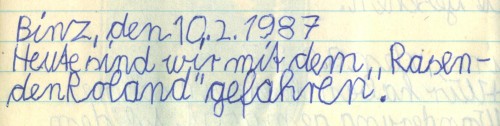 Binz, den 10.2.1987
Heute sind wir mit dem „Rasen-
den Roland" gefahren.